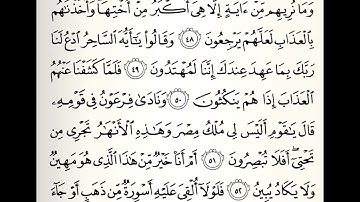 وَمَا نُرِيهِم مِّنْ ءَايَةٍ إِلَّا هِيَ أَكْبَرُ مِنْ أُخْتِهَا وَأَخَذْنَٰهُم
بِالْعَذَابِ لَعَلَّهُمْ يَرْجِعُونَ ٤٨ وَقَالُوا۟ يَٰٓأَيُّهَ السَّاحِرُ ادْعُ لَنَا
رَبَّكَ بِمَا عَهِدَ عِندَكَ إِنَّنَا لَمُهْتَدُونَ ٤٩ فَلَمَّا كَشَفْنَا عَنْهُمُ
الْعَذَابَ إِذَا هُمْ يَنكُثُونَ ٥٠ وَنَادَىٰ فِرْعَوْنُ فِي قَوْمِهِۦ
قَالَ يَٰقَوْمِ أَلَيْسَ لِي مُلْكُ مِصْرَ وَهَٰذِهِ الْأَنْهَٰرُ تَجْرِي مِن
تَحْتِيٓ أَفَلَا تُبْصِرُونَ ٥١ أَمْ أَنَا۠ خَيْرٌ مِّنْ هَٰذَا الَّذِي هُوَ مَهِينٌ
وَلَا يَكَادُ يُبِينُ ٥٢ فَلَوْلَآ أُلْقِيَ عَلَيْهِ أَسْوِرَةٌ مِّن ذَهَبٍ أَوْ جَآءَ